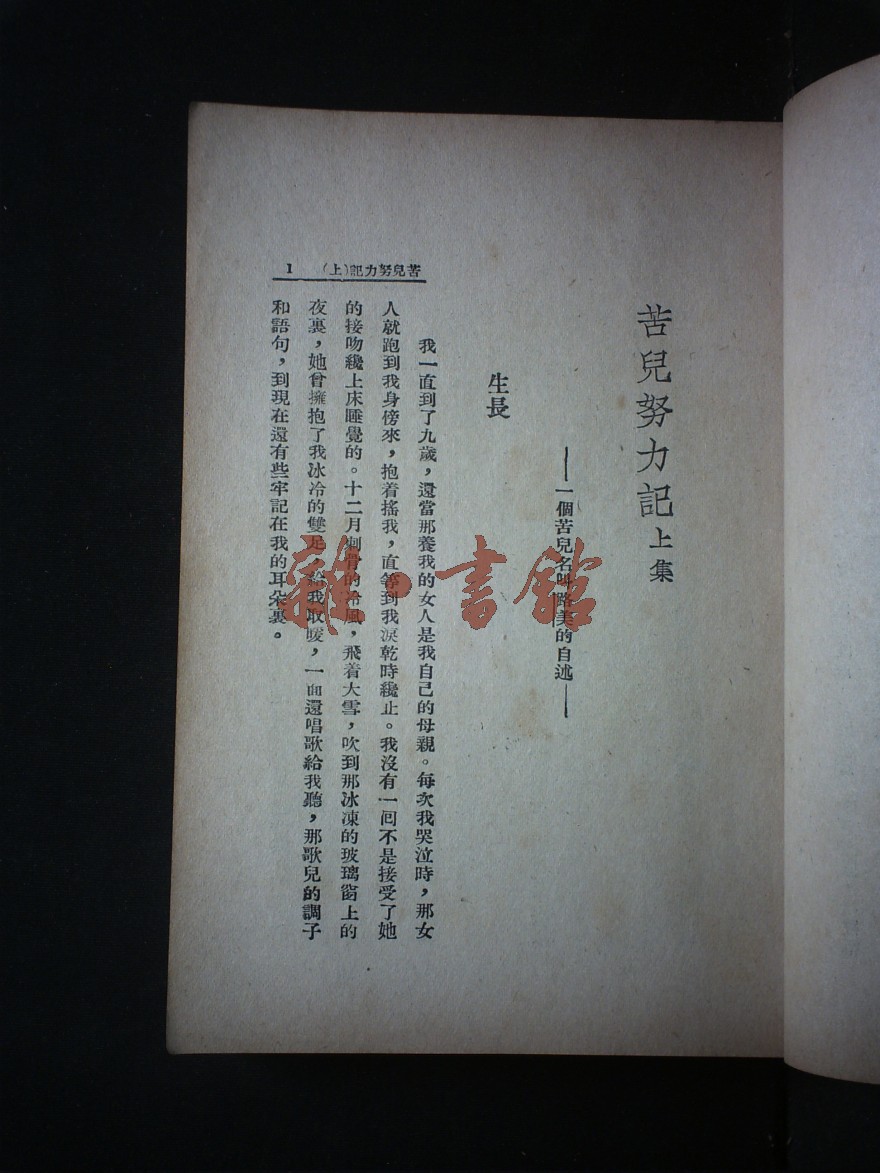 苦兒努力記 上集
——一個苦兒名叫路美的自述——
生長
我一直到了九歲，還當那養我的女人是我自己的母親。每次我哭泣時，那女
人就跑到我身傍來，抱着搖我，直等到我淚乾時纔止。我沒有一回不是接受了她
的接吻纔上床睡覺的。十二月刺骨的冷風，飛着大雪，吹到那冰凍的玻璃窗上的
夜裏，她曾擁抱了我冰冷的雙足，給我取暖，一面還唱歌給我聽，那歌兒的調子
和語句，到現在還有些牢記在我的耳朵裏。
苦兒努力記（上） 1
雜·書館